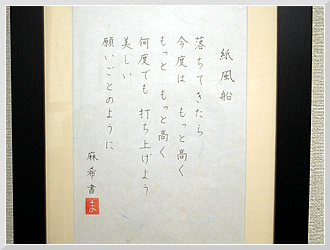 紙風船
落ちてきたら
今度は もっと高く
もっと もっと高く
何度でも 打ち上げよう
美しい
願いごとのように
麻希書
ま